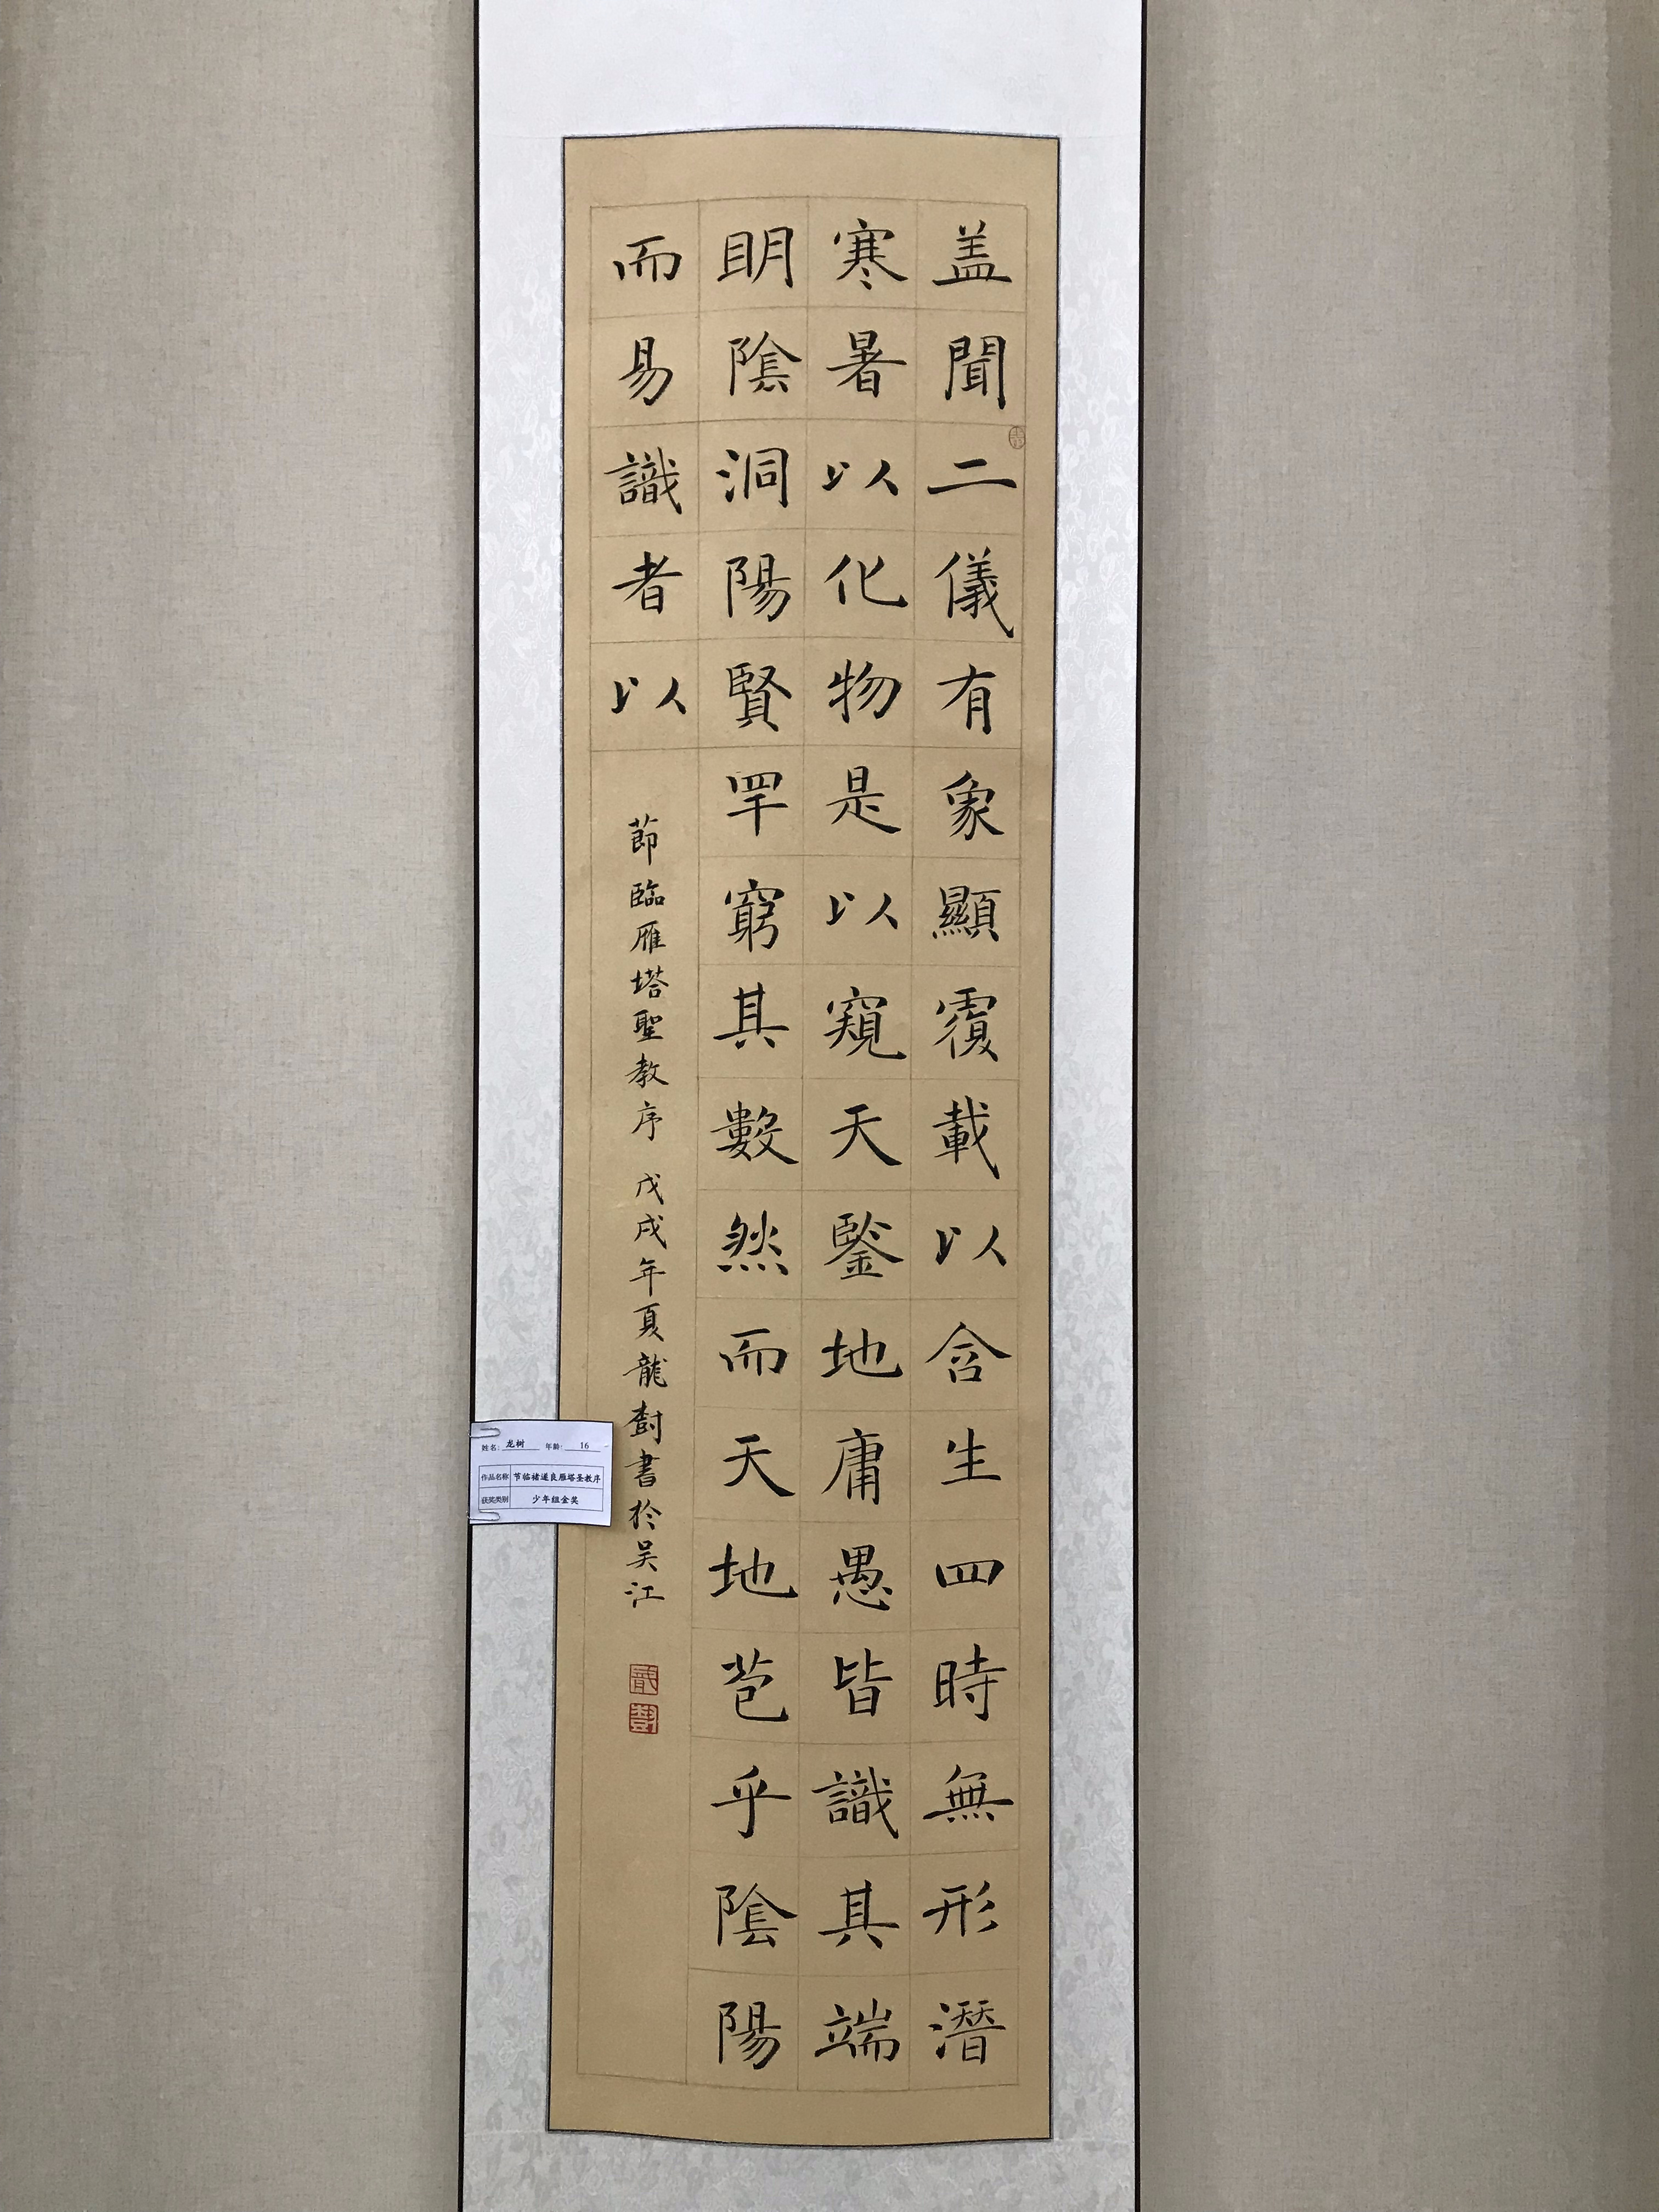 盖聞二儀有象顯覆載以含生四時無形潛
寒暑以化物是以窺天鑒地庸愚皆識其端
明陰洞陽賢罕窮其數然而天地苞乎陰陽
而易識者以
節臨雁塔聖教序 戊戌年夏龍樹書於吴江
龍
樹
姓名: 龙树 年龄: 16
作品名称 节临褚遂良雁塔圣教序
获奖类别 少年组金奖